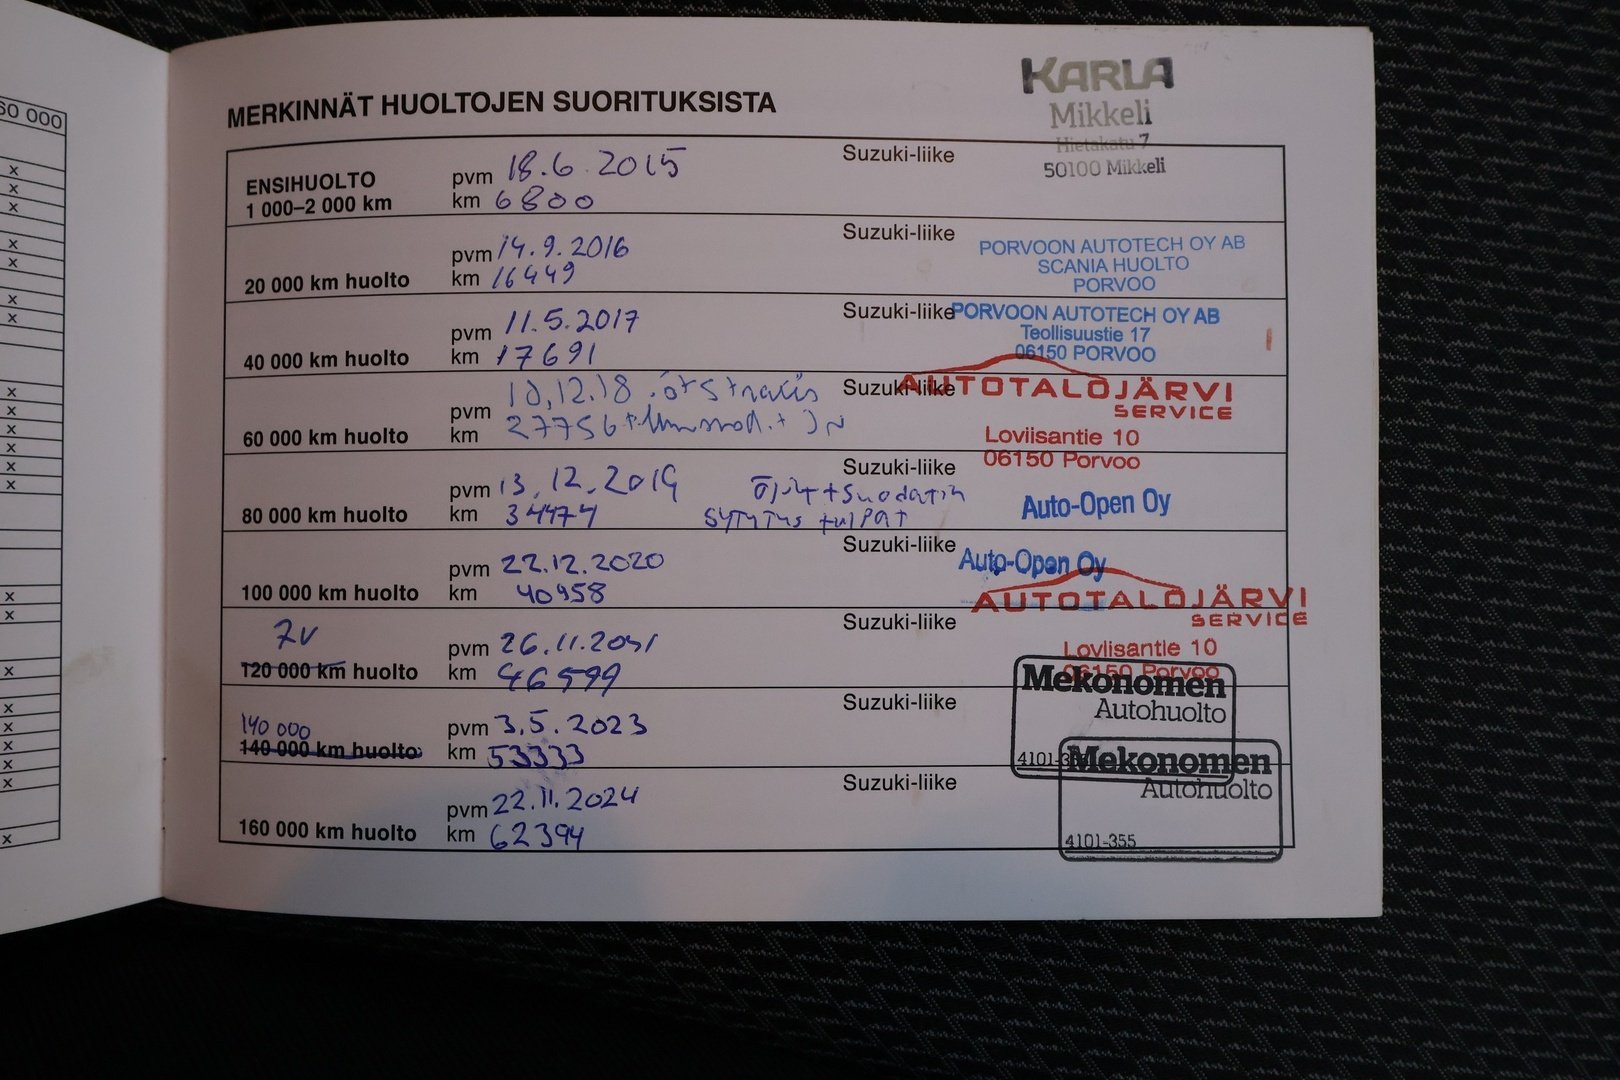 60 000
MERKINNÄT HUOLTOJEN SUORITUKSISTA
KARLA
Mikkeli
Hietakatu 7
50100 Mikkeli
ENSIHUOLTO
1 000–2 000 km
pvm 18.6.2015
km 6800
Suzuki-liike
20 000 km huolto
pvm 14.9.2016
km 16449
Suzuki-liike
PORVOON AUTOTECH OY AB
SCANIA HUOLTO
PORVOO
40 000 km huolto
pvm 11.5.2017
km 17691
Suzuki-liike
PORVOON AUTOTECH OY AB
Teollisuustie 17
06150 PORVOO
60 000 km huolto
pvm 10.12.18
km 27756
Suzuki-liike
AUTOTALOJÄRVI
SERVICE
Loviisantie 10
06150 Porvoo
80 000 km huolto
pvm 13.12.2019
km 34474
Öljyt + suodatin
sytytys tulpat
Suzuki-liike
Auto-Open Oy
100 000 km huolto
pvm 22.12.2020
km 40958
Suzuki-liike
Auto-Open Oy
AUTOTALOJÄRVI
SERVICE
Loviisantie 10
06150 Porvoo
7v
120 000 km huolto
pvm 26.11.2021
km 46599
Suzuki-liike
Mekonomen
Autohuolto
140 000
140 000 km huolto
pvm 3.5.2023
km 53333
Suzuki-liike
4101-3
Mekonomen
Autohuolto
4101-355
160 000 km huolto
pvm 22.11.2024
km 62394
Suzuki-liike